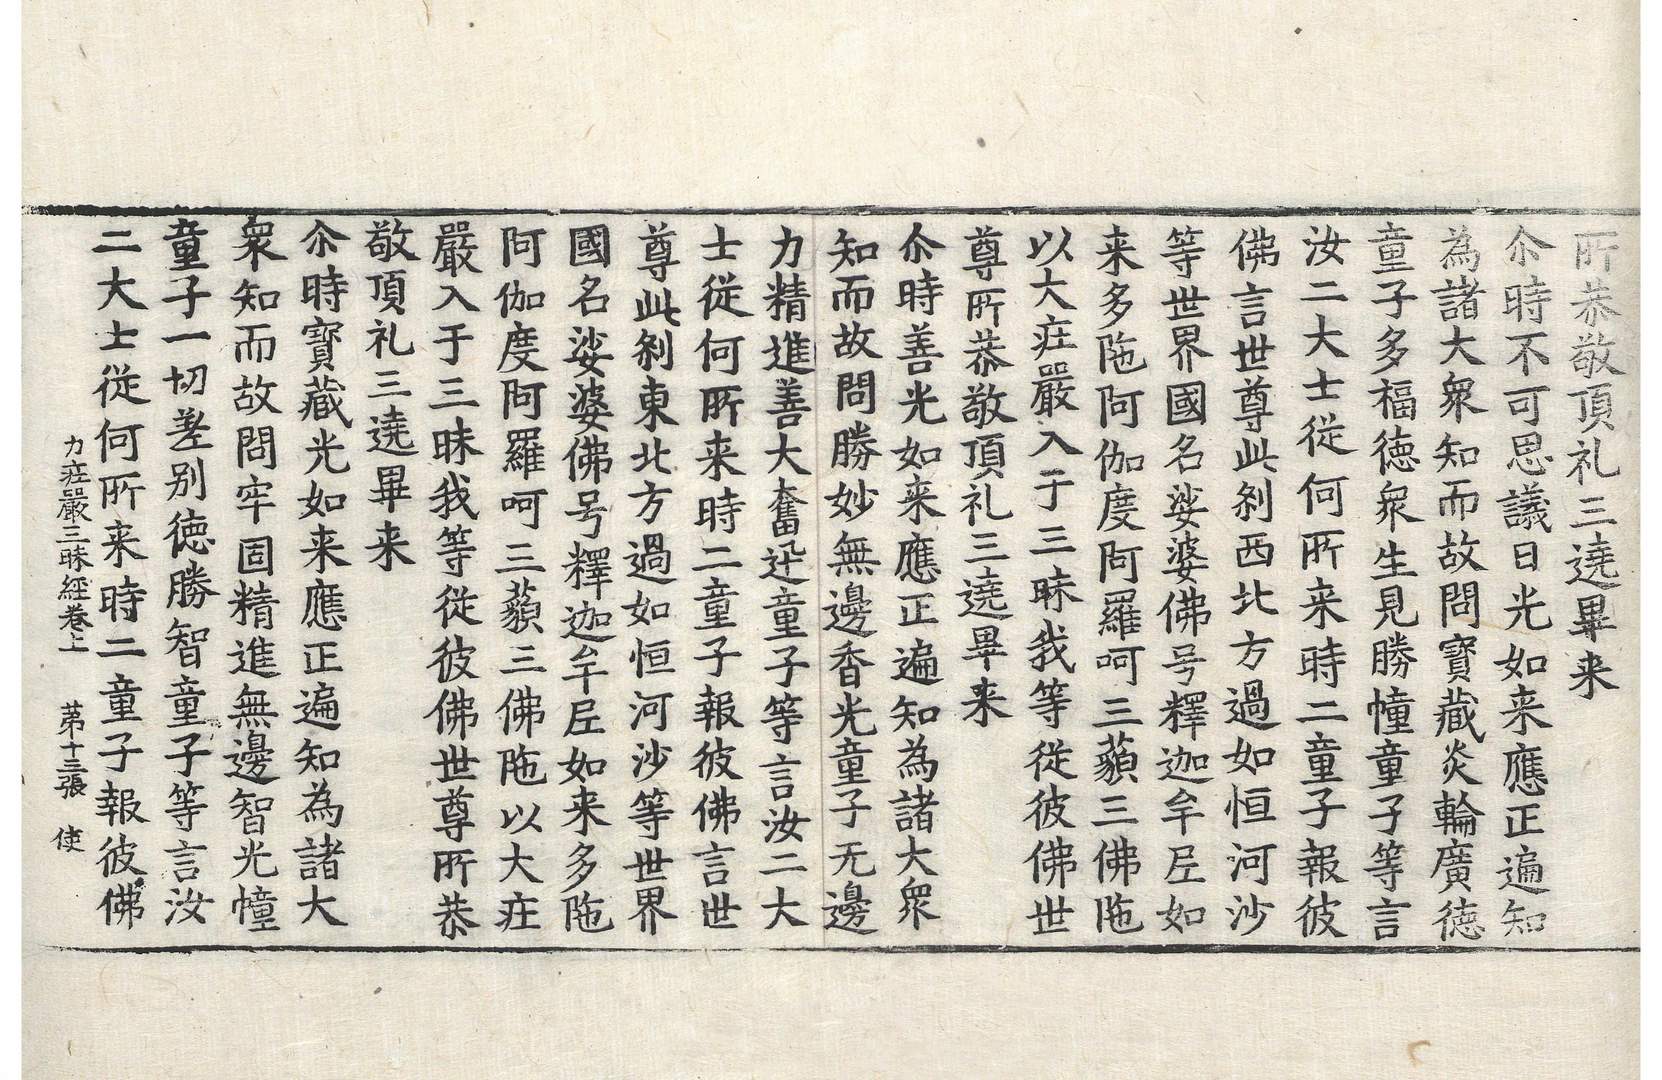 所恭敬頂礼三遶畢来
尒時不可思議日光如来應正遍知
為諸大衆知而故問寶藏炎輪廣德
童子多福德衆生見勝幢童子等言
汝二大士從何所来時二童子報彼
佛言世尊此刹西北方過如恒河沙
等世界國名娑婆佛号釋迦牟尼如
来多陁阿伽度阿羅呵三藐三佛陁
以大莊嚴入于三昧我等從彼佛世
尊所恭敬頂礼三遶畢来
尒時善光如来應正遍知為諸大衆
知而故問勝妙無邊香光童子无邊
力精進善大奮迅童子等言汝二大
士從何所来時二童子報彼佛言世
尊此刹東北方過如恒河沙等世界
國名娑婆佛号釋迦牟尼如来多陁
阿伽度阿羅呵三藐三佛陁以大莊
嚴入于三昧我等從彼佛世尊所恭
敬頂礼三遶畢来
尒時寶藏光如来應正遍知為諸大
衆知而故問牢固精進無邊智光幢
童子一切差别德勝智童子等言汝
二大士從何所来時二童子報彼佛
力莊嚴三昧經卷上 第十三張 使